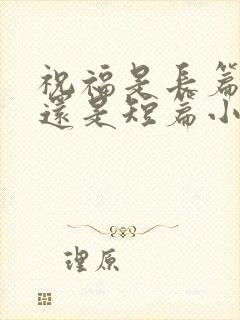 祝福是長篇
還是短篇小
理原